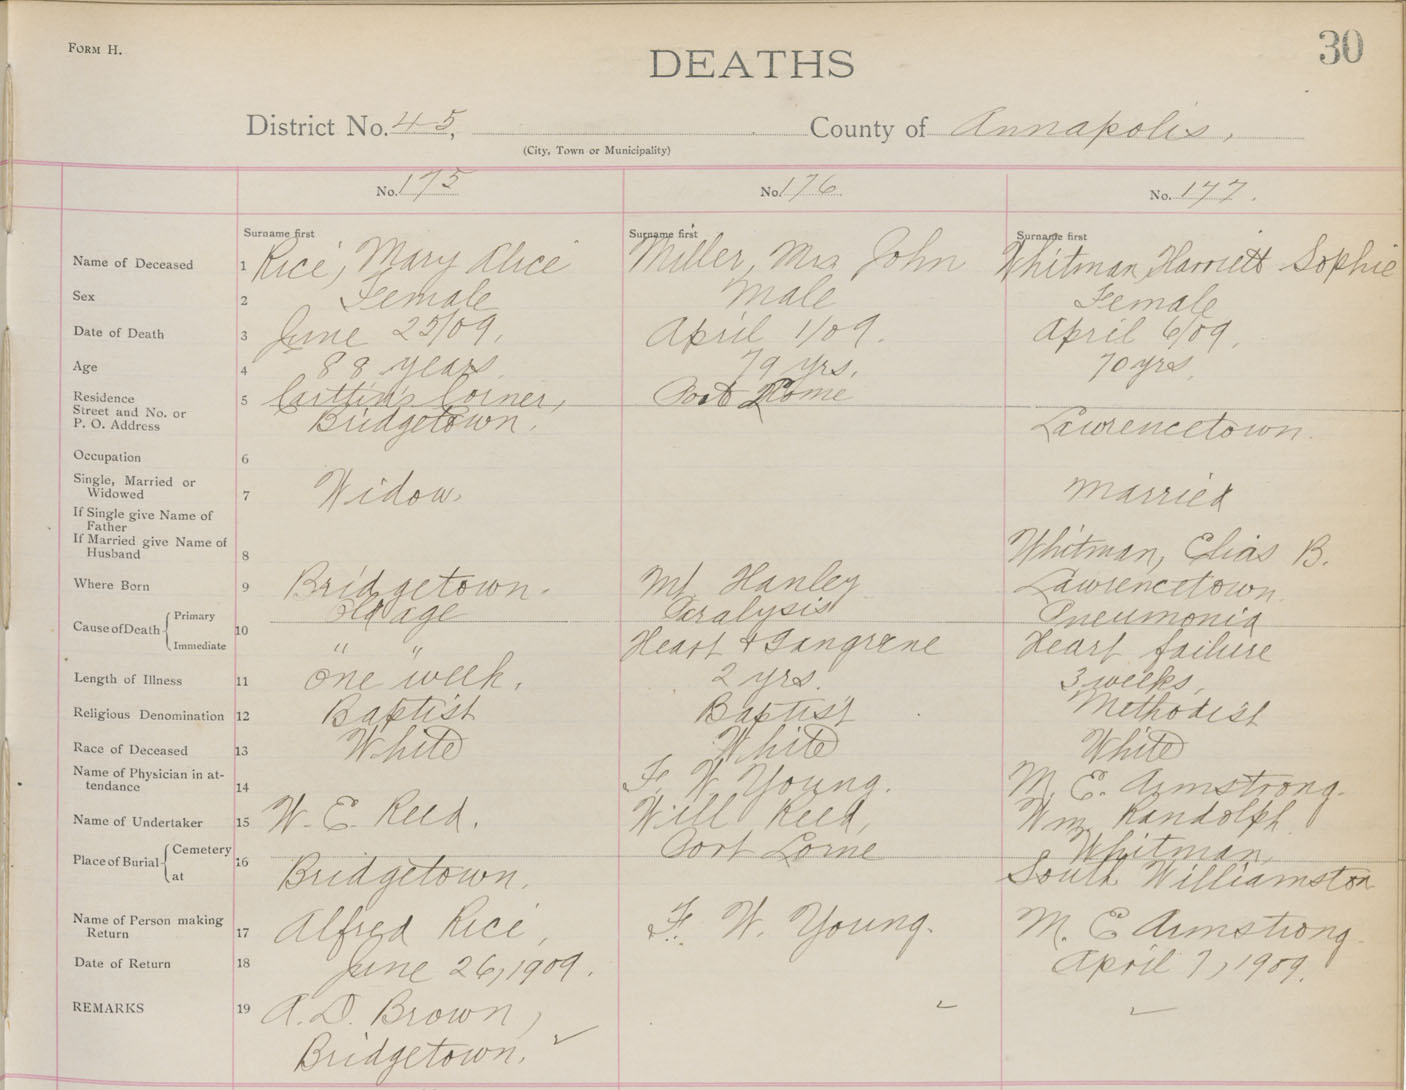 FORM H.
30
DEATHS
District No. 45, County of Annapolis,
(City, Town or Municipality)
No. 175 No. 176 No. 177.
Surname first Surname first Surname first
Name of Deceased 1 Rice, Mary Alice Miller, Mrs John Whitman, Harriett Sophie
Sex 2 Female Male Female
Date of Death 3 June 25/09. April 1/09. April 6/09.
Age 4 88 years. 79 yrs. 70 yrs.
Residence 5 Corner, Port Lorne
Street and No. or
P. O. Address Bridgetown. Lawrencetown.
Occupation 6
Single, Married or
Widowed 7 Widow. Married
If Single give Name of
Father
If Married give Name of
Husband 8 Whitman, Elias B.
Where Born 9 Bridgetown. Mt Hanley Lawrencetown.
Cause of Death Primary 10 Old age Paralysis Pneumonia
Immediate " " Heart & Gangrene Heart failure
Length of Illness 11 one week. 2 yrs. 3 weeks.
Religious Denomination 12 Baptist Baptist Methodist
Race of Deceased 13 White White White
Name of Physician in at-
tendance 14 F. W. Young. M. E. Armstrong.
Name of Undertaker 15 W. E. Reed. Will Reed, Wm Randolph
Place of Burial Cemetery 16 Port Lorne Whitman,
at Bridgetown. South Williamston
Name of Person making
Return 17 Alfred Rice, F. W. Young. M. E Armstrong.
Date of Return 18 June 26, 1909. April 7, 1909.
REMARKS 19 A. D. Brown,
Bridgetown.